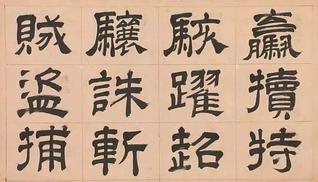 驘犢特
駭躍超
驤誅斬
賊盜捕